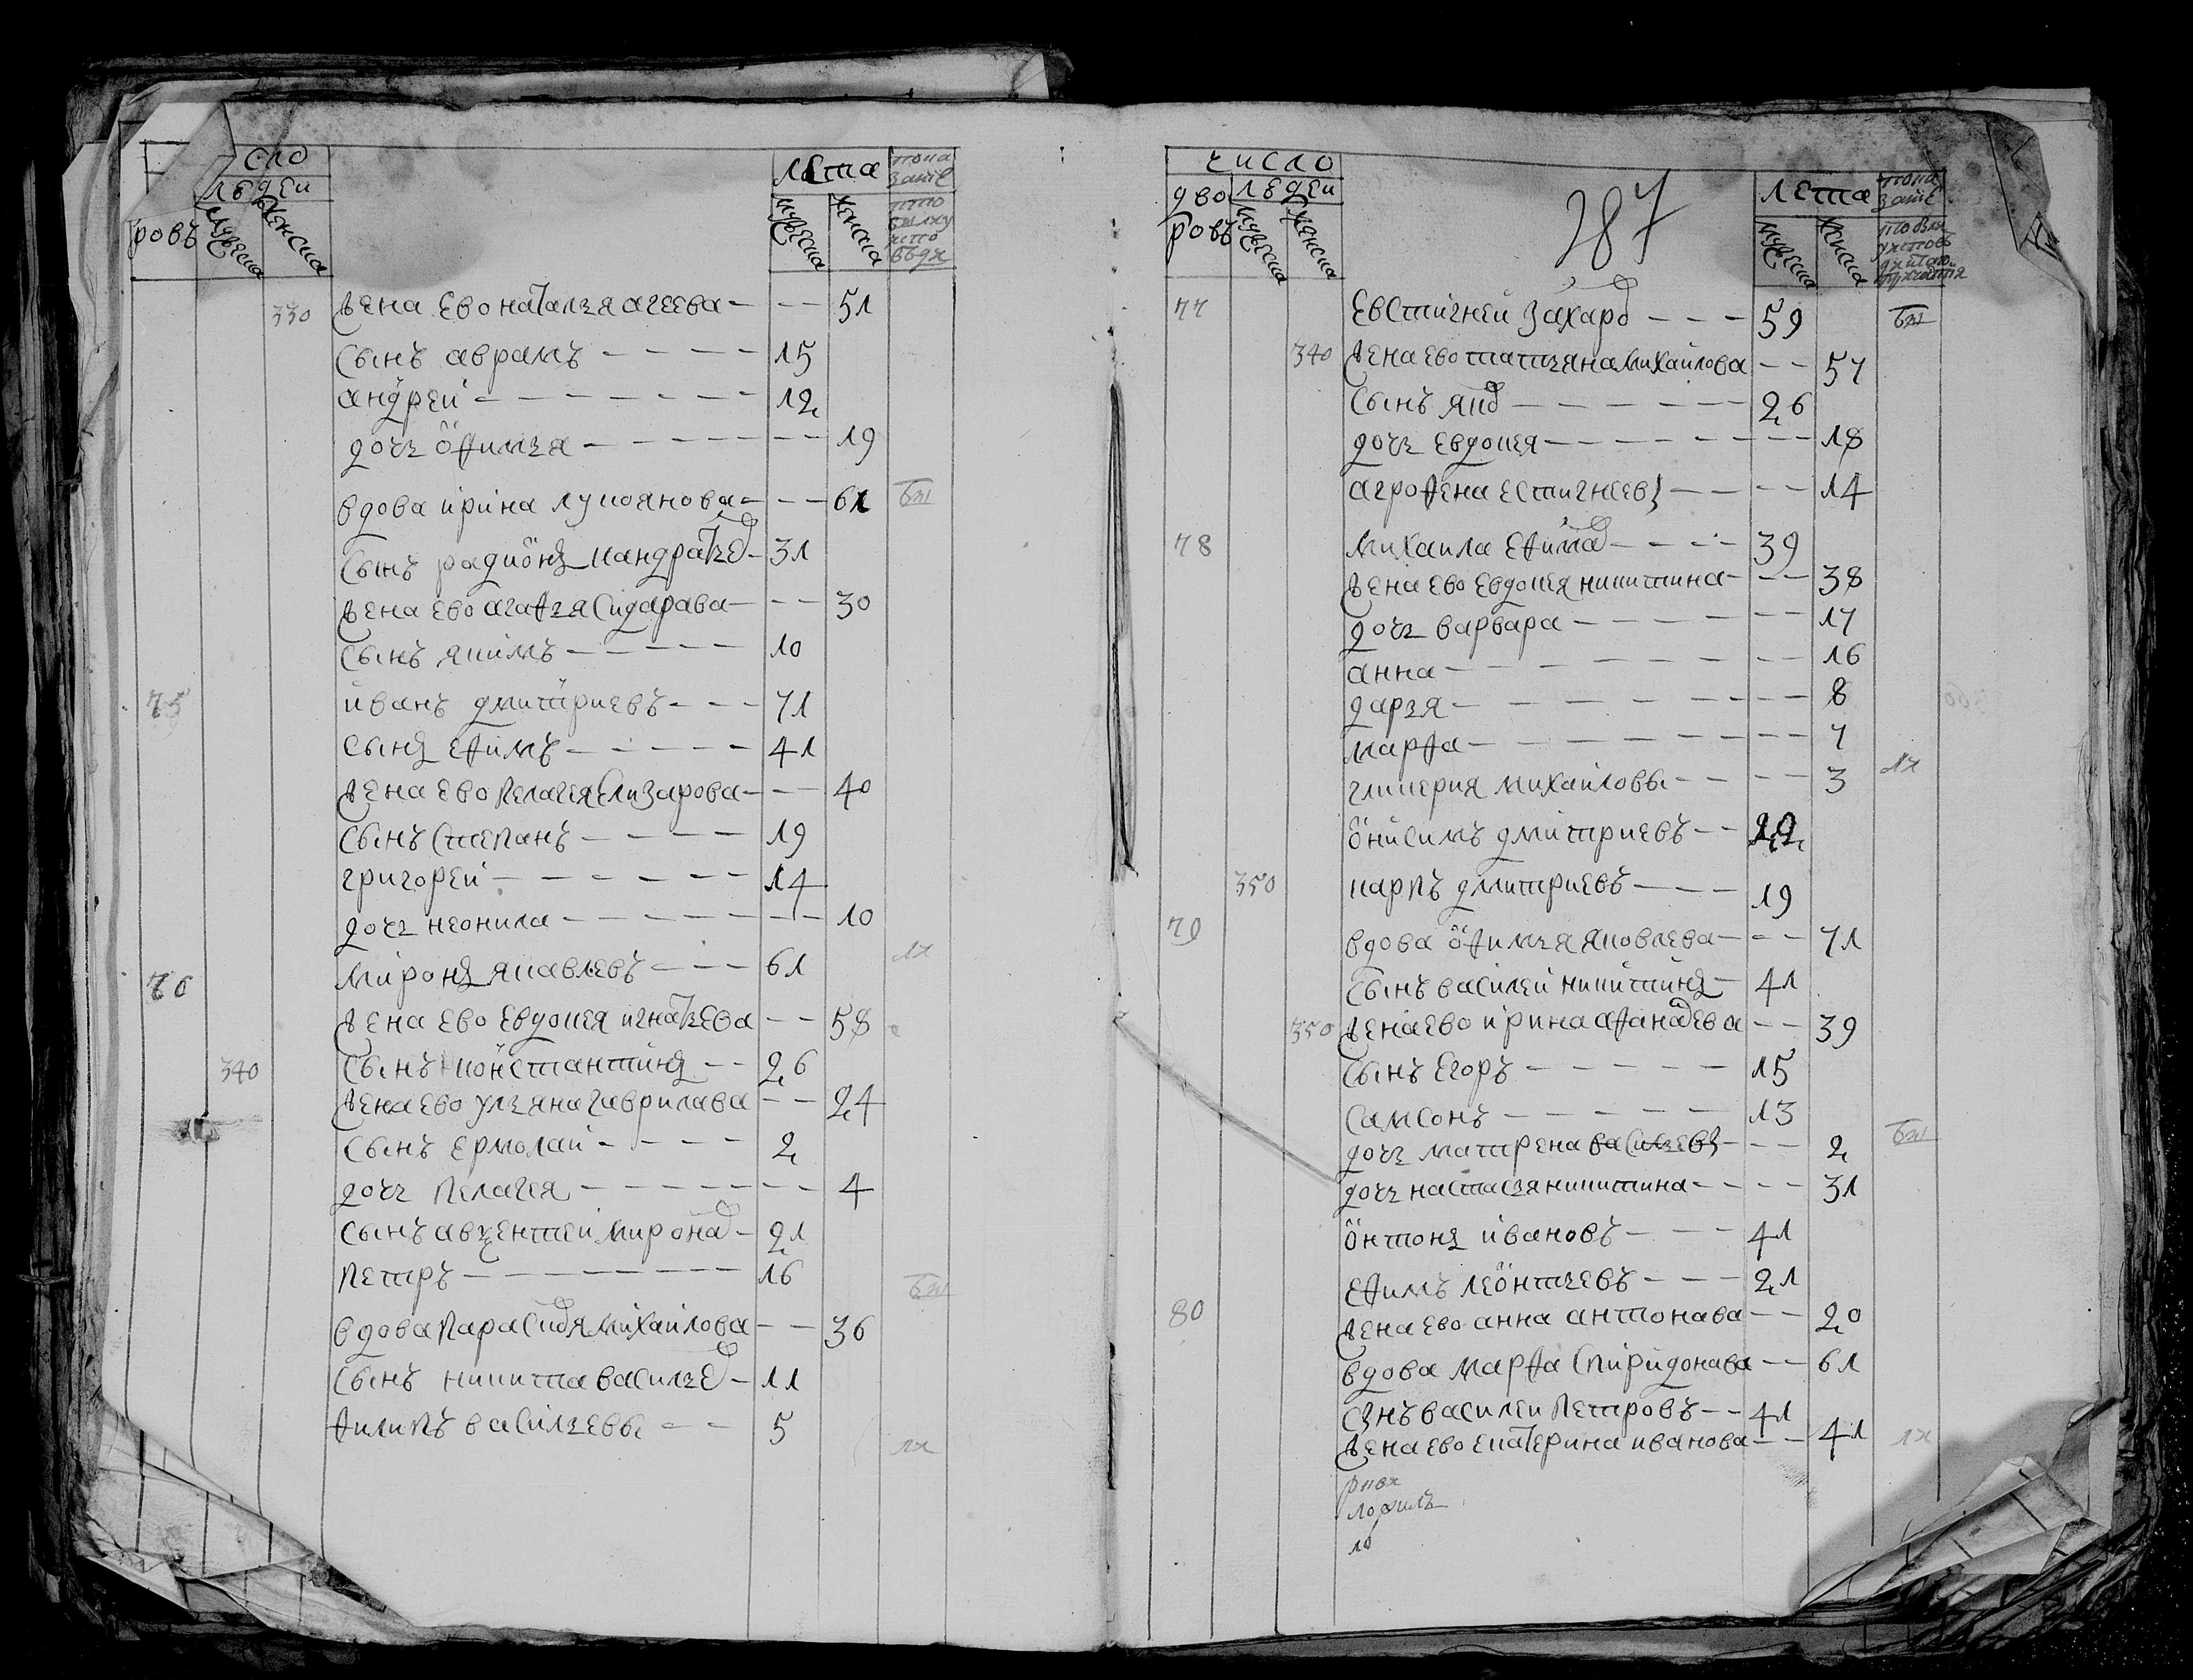 сло
людеи
ровъ
мужеска
женска
лета
пока
зание
мужеска
женска
330 жена ево наталья агеева - - - 51
сынъ аврамъ - - - - 15
андреи - - - - - - - 12
дочь офимья - - - - - - - 19
вдова ирина лукоянова - - - 61 бы
сынъ радионъ кандратьев - 31
жена ево агафья сидарава - - - 30
сынъ якимъ - - - - - 10
75 иванъ дмитриевъ - - - 71
сынъ ефимъ - - - - - 41
жена ево пелагея елизарова - - - 40
сынъ степанъ - - - - 19
григореи - - - - - - 14
дочь неонила - - - - - - - - 10
76 миронъ яковлевъ - - - 61
жена ево евдокея игнатьева - - 58
340 сынъ константинъ - - 26
жена ево ульяна гаврилава - - 24
сынъ ермолаи - - - - 2
дочь пелагея - - - - - - - 4
сынъ авксентеи миронов - 21
петръ - - - - - - - - - 16
вдова парасковя михаилова - - 36
сынъ никита васильев - 11
филипъ васильевы - - 5
число
дво
ровъ
людеи
мужеска
женска
287
лета
пока
зание
мужеска
женска
77 евстигнеи захаров - - - 59 бы
340 жена ево татьяна михаилова - - 57
сынъ яков - - - - - - 26
дочь евдокея - - - - - - - - 18
агрофена естигнеевы - - - - 14
78 михаила ефимов - - - - 39
жена ево евдокея никитина - - - 38
дочь варвара - - - - - - - 17
анна - - - - - - - - - 16
дарья - - - - - - - - 8
марфа - - - - - - - - 7
гликерия михаиловы - - - - 3
онисимъ дмитриевъ - - 22
350 карпъ дмитриевъ - - - 19
79 вдова офимья яковлева - - - 71
сынъ василеи никитинъ - 41
350 жена ево ирина афанасева - - 39
сынъ егоръ - - - - - - 15
самсонъ - - - - - 13
дочь матрена васильевы - - - 2 бы
дочь настасья никитина - - - - 31
онтонъ ивановъ - - - 41
ефимъ леонтьевъ - - - 21
80 жена ево анна антонава - - 20
вдова марфа спиридонава - - 61
сынъ василеи петровъ - - 41
жена ево екатерина иванова - - 41